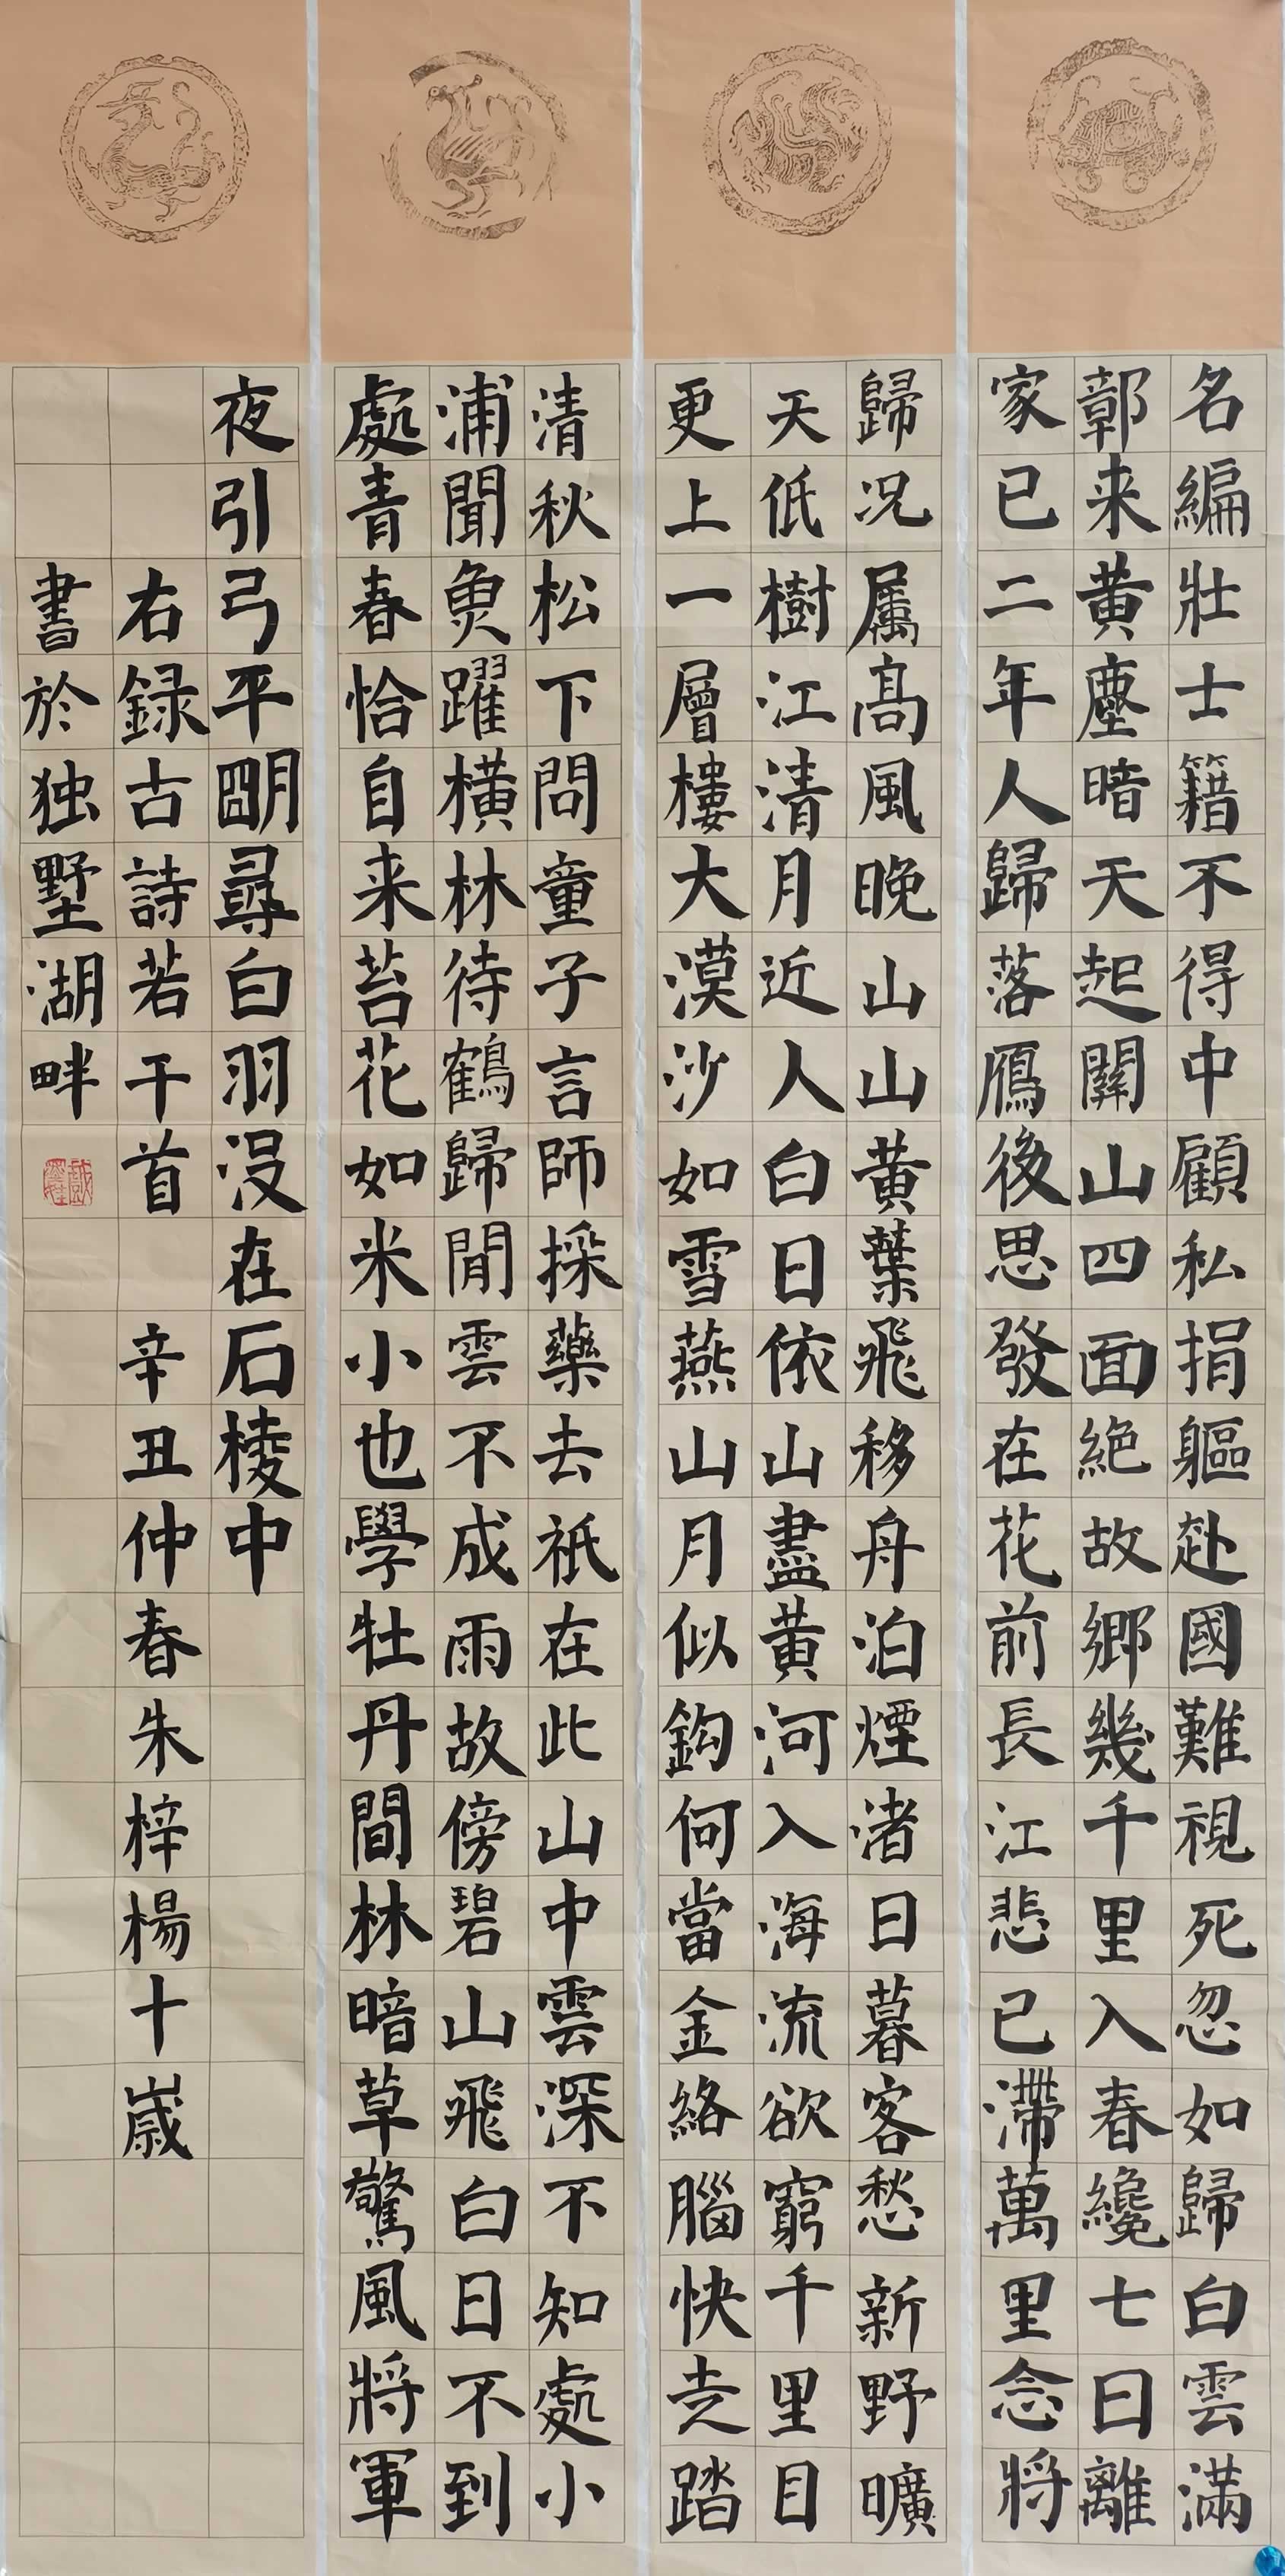 名編壯士籍不得中顧私捐軀赴國難視死忽如歸白雲滿
鄣来黃塵暗天起關山四面絶故鄉幾千里入春纔七日離
家已二年人歸落鴈後思發在花前長江悲已滯萬里念將
歸况属高風晚山山黃葉飛移舟泊煙渚日暮客愁新野曠
天低樹江清月近人白日依山盡黃河入海流欲窮千里目
更上一層樓大漠沙如雪燕山月似鈎何當金絡腦快走踏
清秋松下問童子言師採藥去祇在此山中雲深不知處小
浦聞魚躍橫林待鶴歸閒雲不成雨故傍碧山飛白日不到
處青春恰自来苔花如米小也學牡丹間林暗草驚風將軍
夜引弓平明尋白羽沒在石棱中
右録古詩若干首 辛丑仲春朱梓楊十歲
書於独墅湖畔